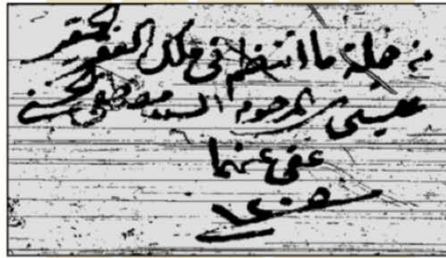 من جملة ما انتظم في ملك الفقير الحقير
عيسى المرحوم السيد مصطفى الحسني
عفي عنهما